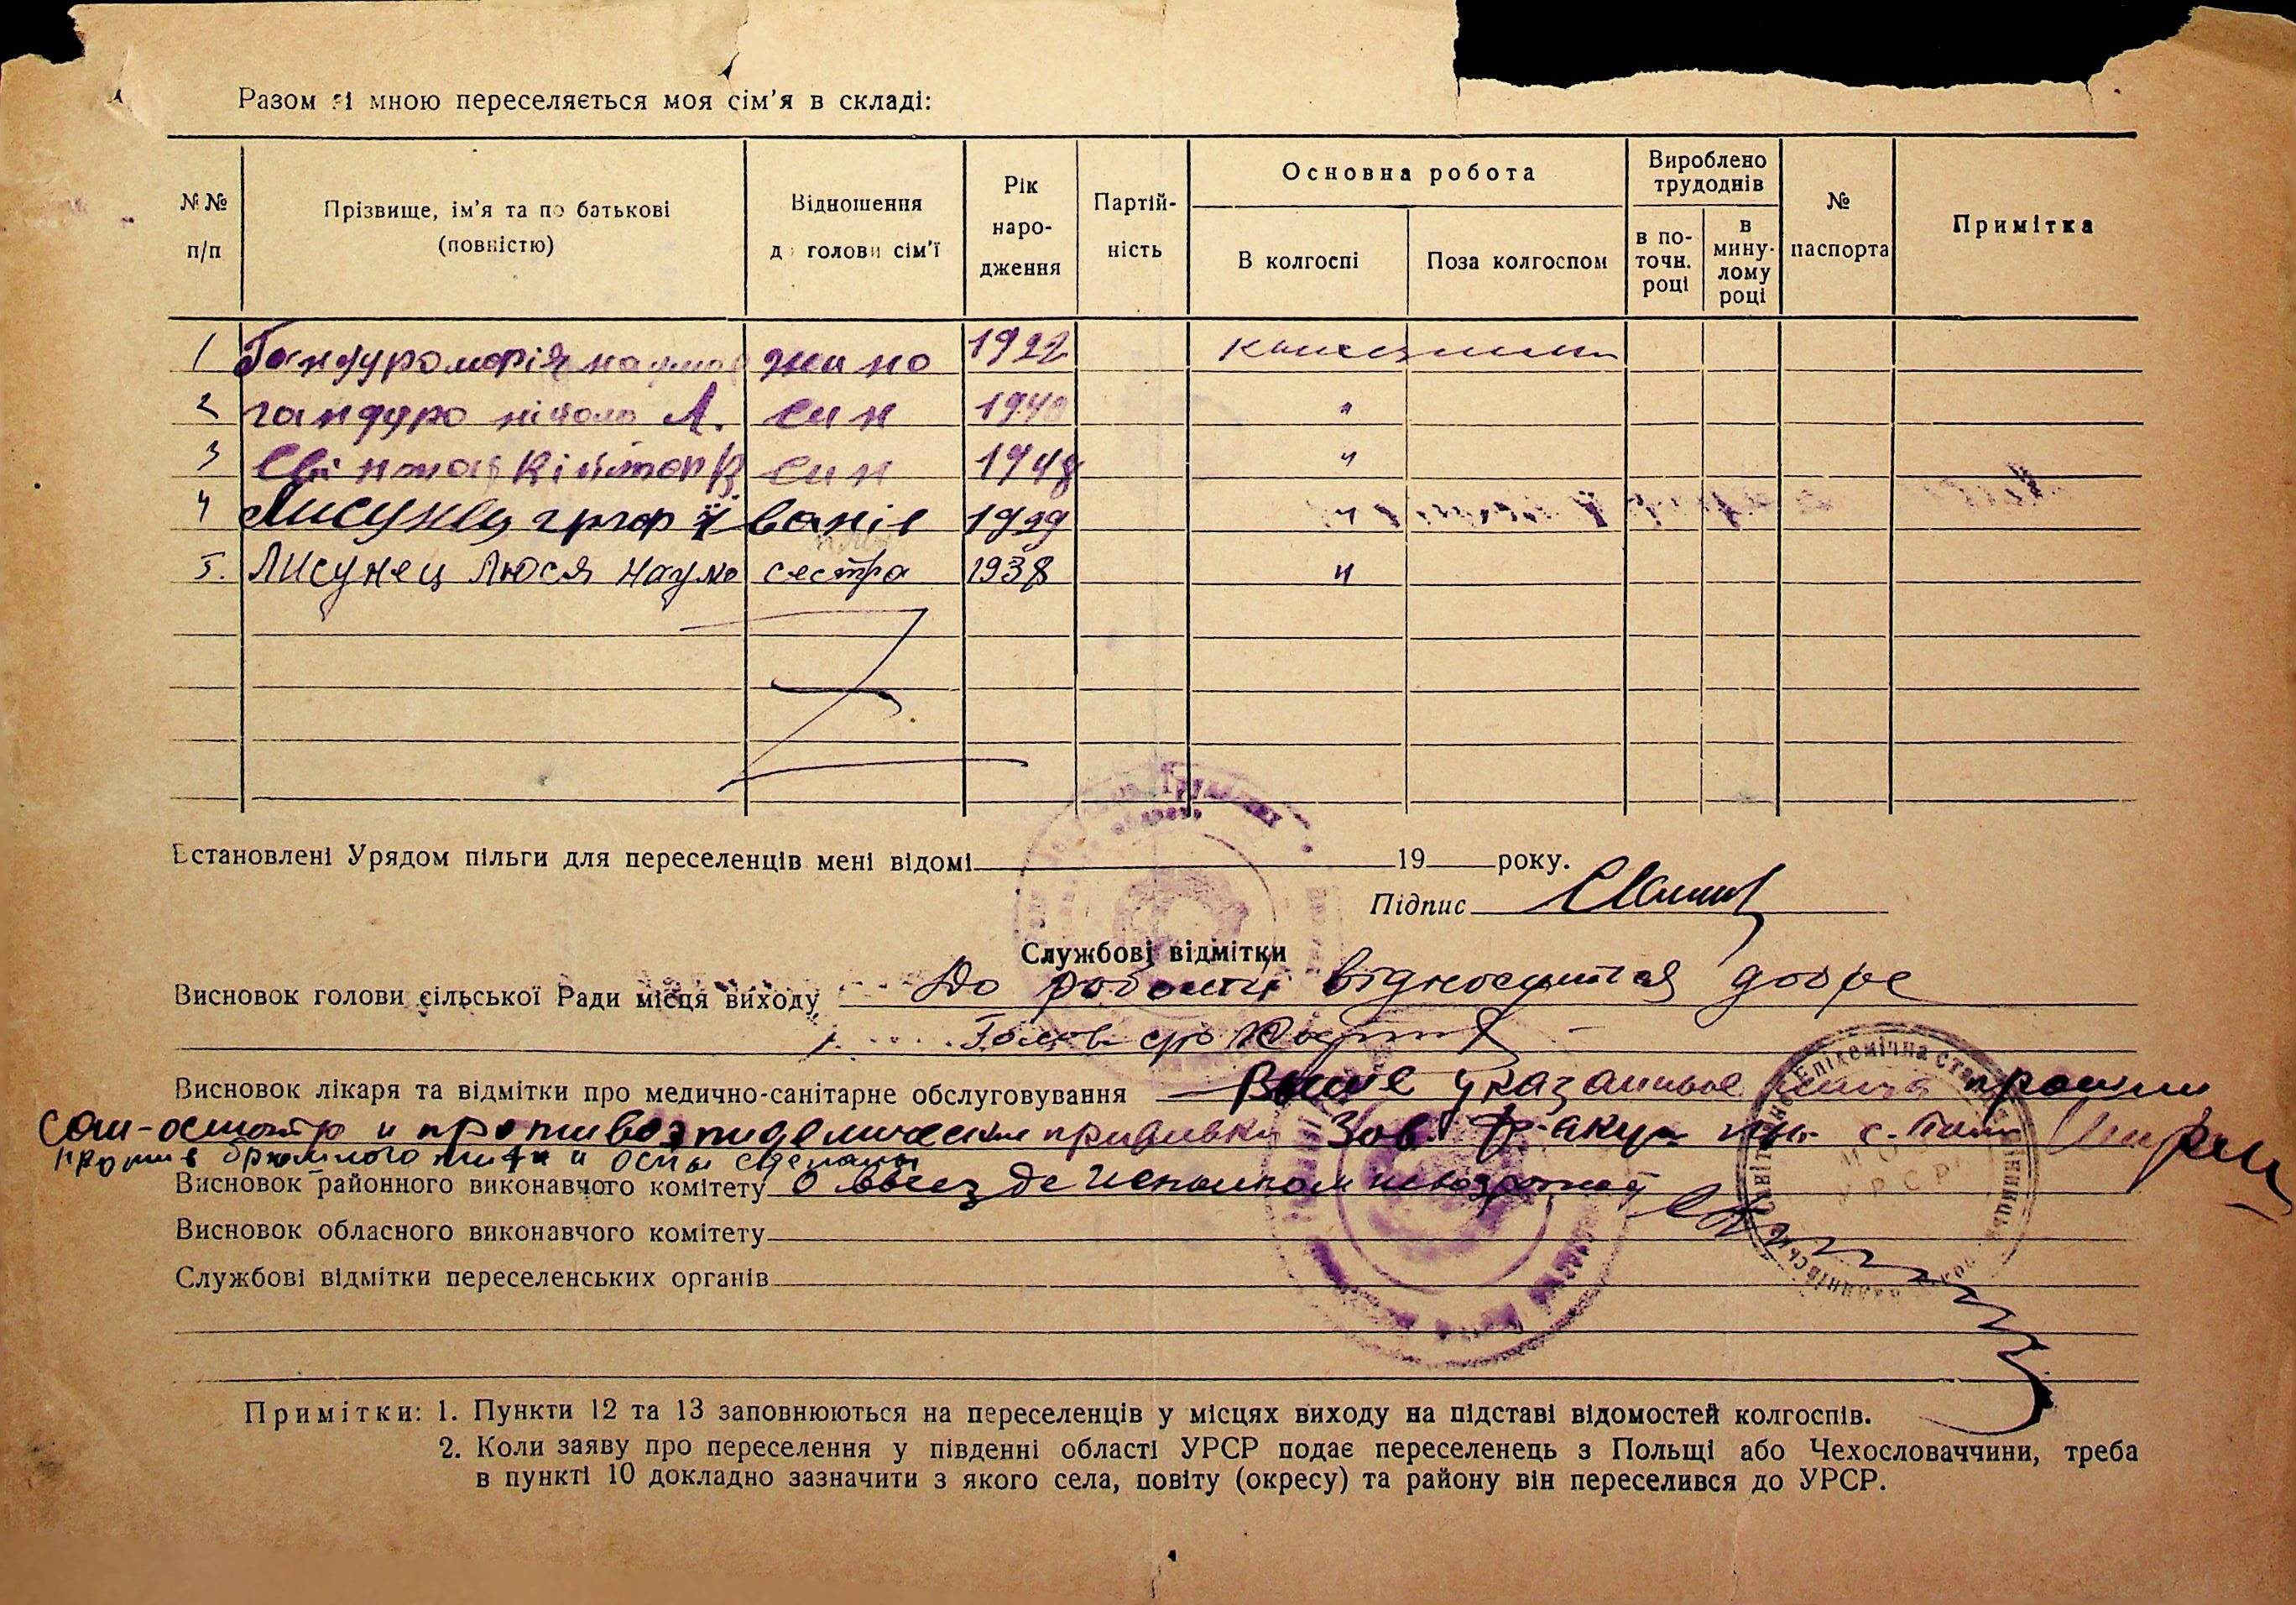 Разом зі мною переселяється моя сім'я в складі:
№№ п/п
Прізвище, ім'я та по батькові (повністю)
Відношення до голови сім'ї
Рік народження
Партійність
Основна робота
В колгоспі
Поза колгоспом
Вироблено трудоднів
в поточн. році
в минулому році
№ паспорта
Примітка
1 Гандуро марія наумов жино 1922
2 гандуро нікола А. син 1940 "
3 син 1948 "
4 Лисунец григорій 1929 "
5. Лисунец Люся Наумо сестра 1938 "
Встановлені Урядом пільги для переселенців мені відомі 19 року.
Підпис
Службові відмітки
Висновок голови сільської Ради місця виходу До роботи відноситься добре
Голова с/р
Висновок лікаря та відмітки про медично-санітарне обслуговування Выше указанные лица прошли
сан-осмотр и противоэпидемические прививки Зав.
против брюшного тифа и оспы сделаны
Висновок районного виконавчого комітету
Висновок обласного виконавчого комітету
Службові відмітки переселенських органів
Примітки: 1. Пункти 12 та 13 заповнюються на переселенців у місцях виходу на підставі відомостей колгоспів.
2. Коли заяву про переселення у південні області УРСР подає переселенець з Польщі або Чехословаччини, треба
в пункті 10 докладно зазначити з якого села, повіту (окресу) та району він переселився до УРСР.